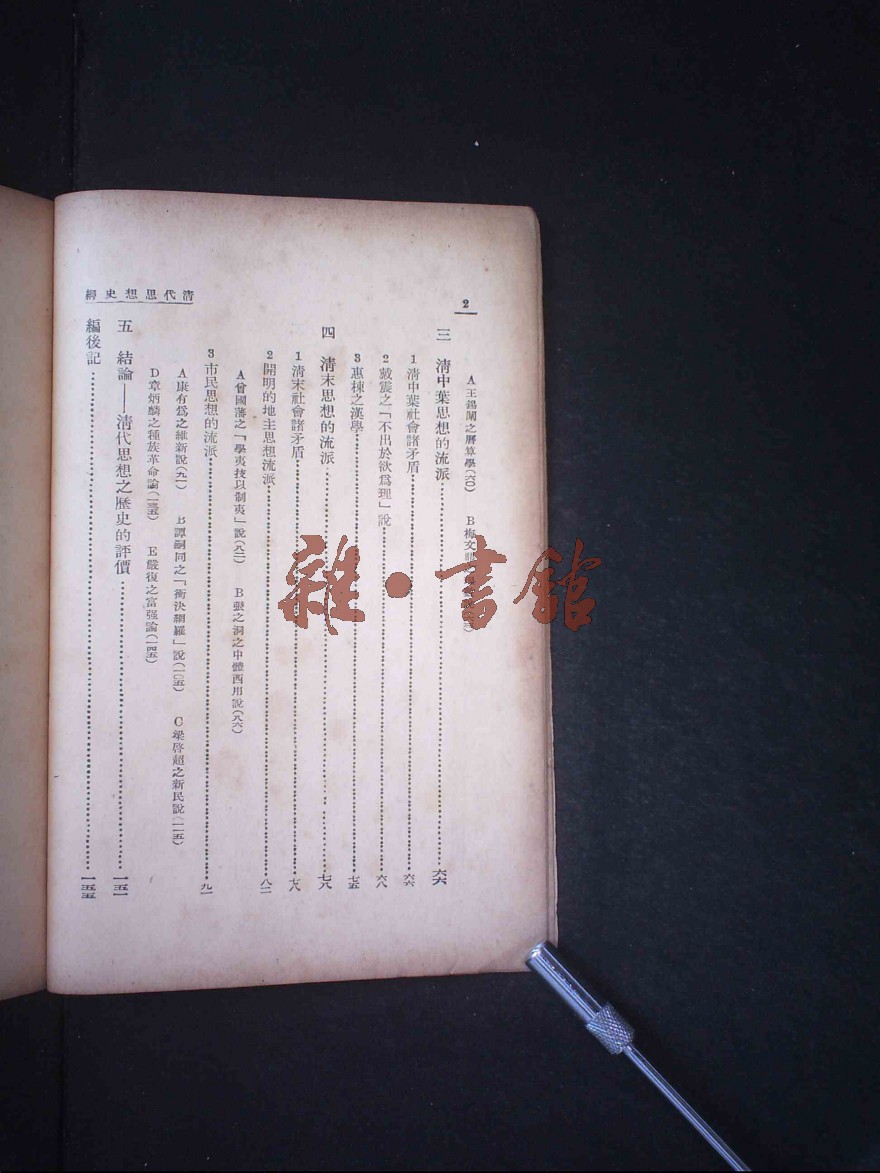 清代思想史綱
2
A 王錫闡之曆算學(六〇) B 梅文
三 清中葉思想的流派 六六
1 清中葉社會諸矛盾 六六
2 戴震之「不出於欲爲理」說 六八
3 惠棟之漢學 七五
四 清末思想的流派 七八
1 清末社會諸矛盾 七八
2 開明的地主思想流派 八二
A 曾國藩之「學夷技以制夷」說(八二) B 張之洞之中體西用說(八六)
3 市民思想的流派 九一
A 康有爲之維新說(九一) B 譚嗣同之「衝決網羅」說(一〇五) C 梁啓超之新民說(一一五)
D 章炳麟之種族革命論(一三五) E 嚴復之富强論(一四五)
五 結論——清代思想之歷史的評價 一五一
編後記 一五五
雜·書館